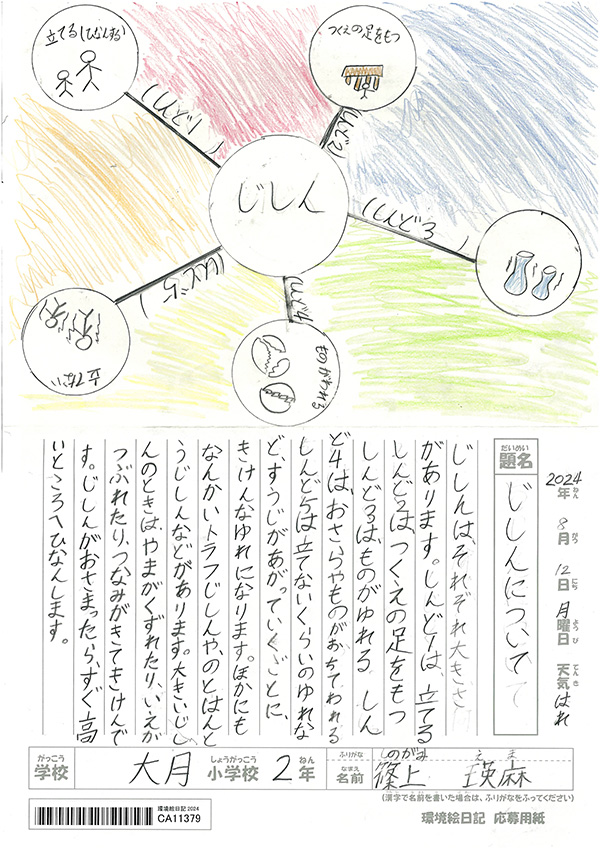 立てる(ひなんする)
つくえの足をもつ
(しんど1)
(しんど2)
じしん
(しんど3)
(しんど5)
(しんど4)
立てない
ものがわれる
2024年 8月 12日 月曜日 天気 はれ
ねん がつ にち ようび てんき
だいめい
題名 じしんについて
じしんは、それぞれ大きさ
があります。しんど1は、立てる
しんど2は、つくえの足をもつ
しんど3は、ものがゆれる しん
ど4は、おさらやものがおちてわれる
しんど5は立てないくらいのゆれな
ど、すうじがあがっていくごとに、
きけんなゆれになります。ほかにも
なんかいトラフじしんや、のとはんと
うじしんなどがあります。大きいじし
んのときは、やまがくずれたり、いえが
つぶれたり、つなみがきてきけんで
す。じしんがおさまったら、すぐ高
いところへひなんします。
がっこう しょうがっこう ねん
学校 大月 小学校 2年
ふりがな しのがみ えま
なまえ
名前 篠上 瑛麻
(漢字で名前を書いた場合は、ふりがなをふってください)
環境絵日記2024
CA11379
環境絵日記 応募用紙